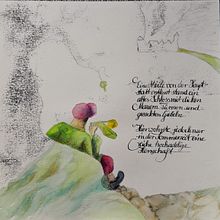 Eine Meile von der Haupt-
stadt entfernt stand ein
altes Schloss mit dicken
Mauern, Türmen und
gezackten Giebeln.
Hier wohnte, jedoch nur
in der Sommerzeit eine
reiche hochadelige
Herrschaft